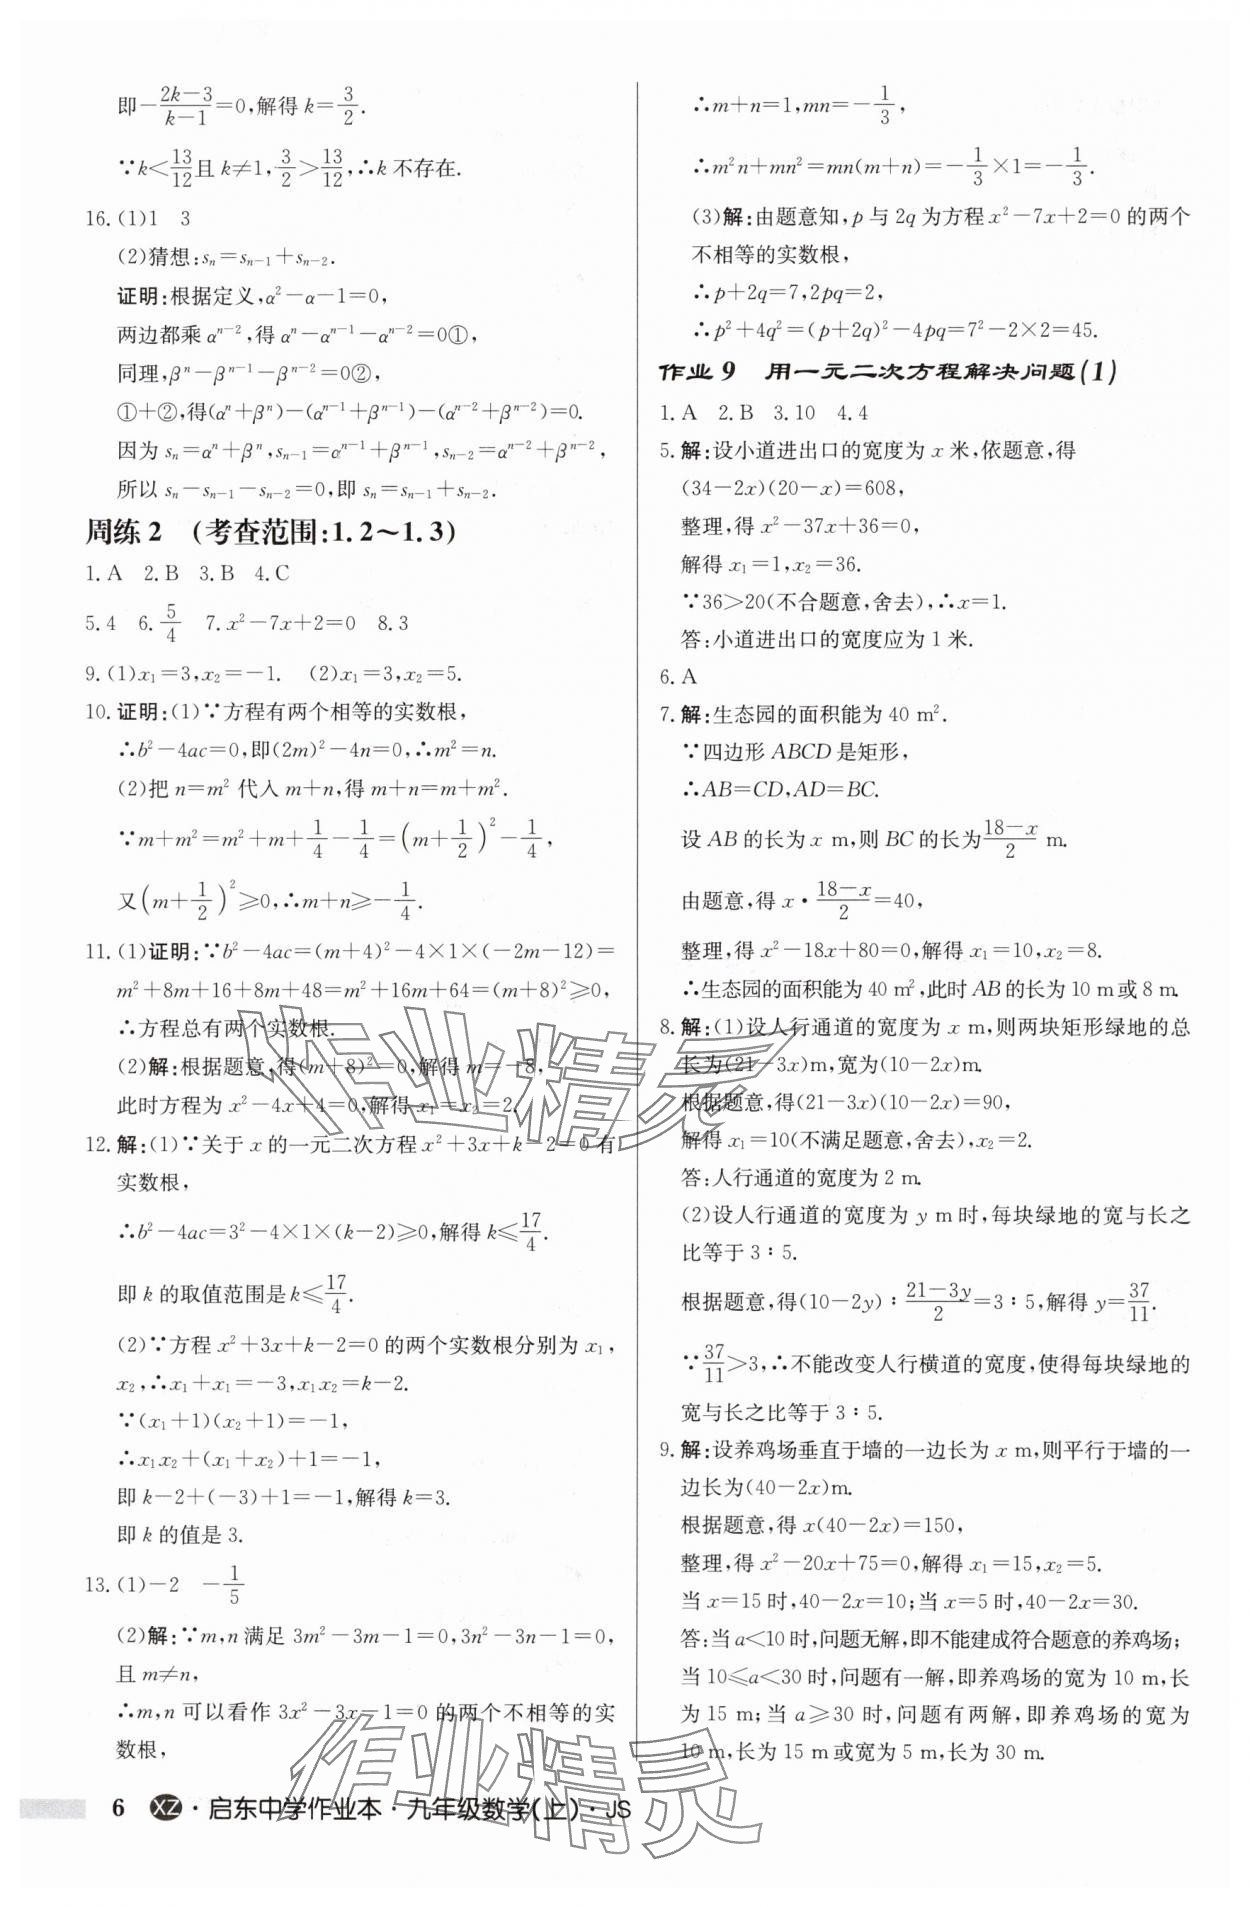 即−(2k−3)/(k−1)=0,解得 k=3/2.
∵k<13/12且 k≠1,3/2>13/12,∴k 不存在.
16.(1)1　3
(2)猜想:sₙ=sₙ₋₁+sₙ₋₂.
证明:根据定义,α²−α−1=0,
两边都乘 αⁿ⁻²,得 αⁿ−αⁿ⁻¹−αⁿ⁻²=0①,
同理,βⁿ−βⁿ⁻¹−βⁿ⁻²=0②,
①+②,得(αⁿ+βⁿ)−(αⁿ⁻¹+βⁿ⁻¹)−(αⁿ⁻²+βⁿ⁻²)=0.
因为 sₙ=αⁿ+βⁿ,sₙ₋₁=αⁿ⁻¹+βⁿ⁻¹,sₙ₋₂=αⁿ⁻²+βⁿ⁻²,
所以 sₙ−sₙ₋₁−sₙ₋₂=0,即 sₙ=sₙ₋₁+sₙ₋₂.
周练 2　(考查范围:1.2～1.3)
1.A　2.B　3.B　4.C
5.4　6.5/4　7.x²−7x+2=0　8.3
9.(1)x₁=3,x₂=−1.　(2)x₁=3,x₂=5.
10.证明:(1)∵方程有两个相等的实数根,
∴b²−4ac=0,即(2m)²−4n=0,∴m²=n.
(2)把 n=m² 代入 m+n,得 m+n=m+m².
∵m+m²=m²+m+1/4−1/4=(m+1/2)²−1/4,
又(m+1/2)²≥0,∴m+n≥−1/4.
11.(1)证明:∵b²−4ac=(m+4)²−4×1×(−2m−12)=
m²+8m+16+8m+48=m²+16m+64=(m+8)²≥0,
∴方程总有两个实数根.
(2)解:根据题意,得(m+8)²=0,解得 m=−8,
此时方程为 x²−4x+4=0,解得 x₁=x₂=2.
12.解:(1)∵关于 x 的一元二次方程 x²+3x+k−2=0 有
实数根,
∴b²−4ac=3²−4×1×(k−2)≥0,解得 k≤17/4.
即 k 的取值范围是 k≤17/4.
(2)∵方程 x²+3x+k−2=0 的两个实数根分别为 x₁,
x₂,∴x₁+x₁=−3,x₁x₂=k−2.
∵(x₁+1)(x₂+1)=−1,
∴x₁x₂+(x₁+x₂)+1=−1,
即 k−2+(−3)+1=−1,解得 k=3.
即 k 的值是 3.
13.(1)−2　−1/5
(2)解:∵m,n 满足 3m²−3m−1=0,3n²−3n−1=0,
且 m≠n,
∴m,n 可以看作 3x²−3x−1=0 的两个不相等的实
数根,
∴m+n=1,mn=−1/3,
∴m²n+mn²=mn(m+n)=−1/3×1=−1/3.
(3)解:由题意知,p 与 2q 为方程 x²−7x+2=0 的两个
不相等的实数根,
∴p+2q=7,2pq=2,
∴p²+4q²=(p+2q)²−4pq=7²−2×2=45.
作业 9　用一元二次方程解决问题(1)
1.A　2.B　3.10　4.4
5.解:设小道进出口的宽度为 x 米,依题意,得
(34−2x)(20−x)=608,
整理,得 x²−37x+36=0,
解得 x₁=1,x₂=36.
∵36>20(不合题意,舍去),∴x=1.
答:小道进出口的宽度应为 1 米.
6.A
7.解:生态园的面积能为 40 m².
∵四边形 ABCD 是矩形,
∴AB=CD,AD=BC.
设 AB 的长为 x m,则 BC 的长为(18−x)/2 m.
由题意,得 x·(18−x)/2=40,
整理,得 x²−18x+80=0,解得 x₁=10,x₂=8.
∴生态园的面积能为 40 m²,此时 AB 的长为 10 m或 8 m.
8.解:(1)设人行通道的宽度为 x m,则两块矩形绿地的总
长为(21−3x)m,宽为(10−2x)m.
根据题意,得(21−3x)(10−2x)=90,
解得 x₁=10(不满足题意,舍去),x₂=2.
答:人行通道的宽度为 2 m.
(2)设人行通道的宽度为 y m时,每块绿地的宽与长之
比等于 3∶5.
根据题意,得(10−2y)∶(21−3y)/2=3∶5,解得 y=37/11.
∵37/11>3,∴不能改变人行横道的宽度,使得每块绿地的
宽与长之比等于 3∶5.
9.解:设养鸡场垂直于墙的一边长为 x m,则平行于墙的一
边长为(40−2x)m.
根据题意,得 x(40−2x)=150,
整理,得 x²−20x+75=0,解得 x₁=15,x₂=5.
当 x=15 时,40−2x=10;当 x=5 时,40−2x=30.
答:当 a<10 时,问题无解,即不能建成符合题意的养鸡场;
当 10≤a<30 时,问题有一解,即养鸡场的宽为 10 m,长
为 15 m;当 a≥30 时,问题有两解,即养鸡场的宽为
10 m,长为 15 m或宽为 5 m,长为 30 m.
作业精灵
作业精灵
6　XZ·启东中学作业本·九年级数学(上)·JS